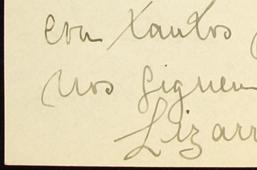 con Xantos
nos siguen
Lizarr